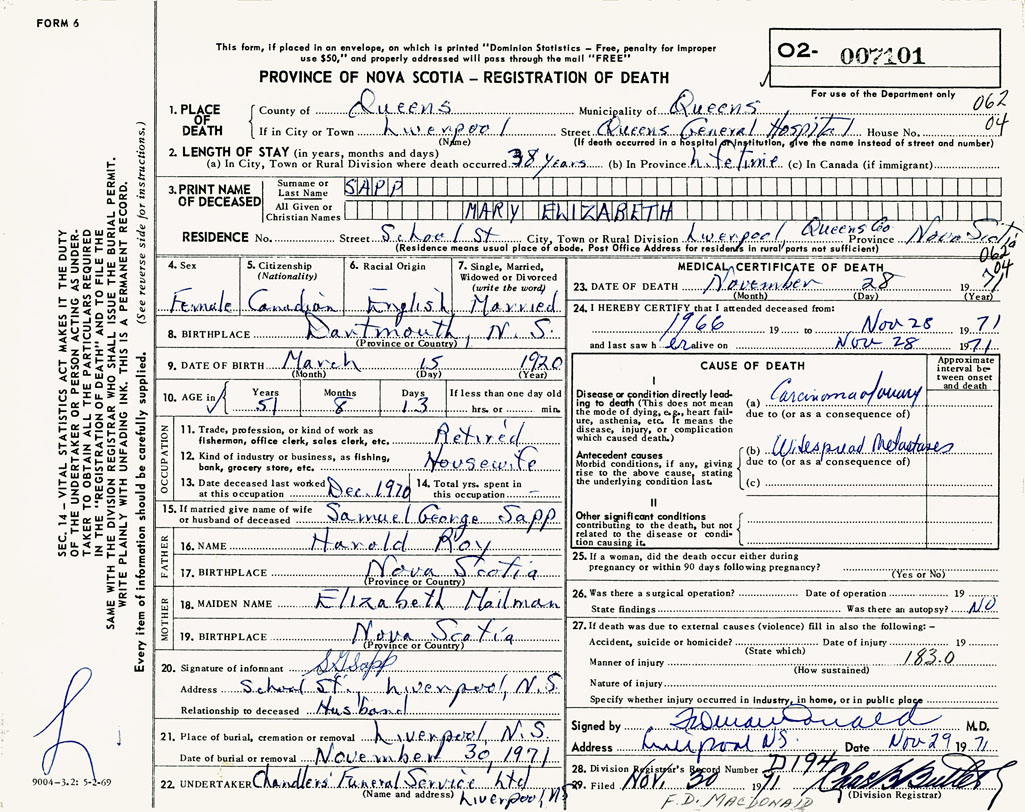 FORM 6
This form, if placed in an envelope, on which is printed "Dominion Statistics – Free, penalty for improper
use $50," and properly addressed will pass through the mail "FREE"
PROVINCE OF NOVA SCOTIA – REGISTRATION OF DEATH
O2- 007101
For use of the Department only
062
04
1. PLACE OF DEATH County of Queens Municipality of Queens
If in City or Town Liverpool Street Queens General Hospital House No.
(Name) (If death occurred in a hospital or institution, give the name instead of street and number)
2. LENGTH OF STAY (in years, months and days)
(a) In City, Town or Rural Division where death occurred 38 years (b) In Province Lifetime (c) In Canada (if immigrant)
3. PRINT NAME OF DECEASED Surname or Last Name SAPP
All Given or Christian Names MARY ELIZABETH
RESIDENCE No. Street School St City, Town or Rural Division Liverpool Queens Co Province Nova Scotia
(Residence means usual place of abode. Post Office Address for residents in rural parts not sufficient)
062
04
4. Sex Female
5. Citizenship (Nationality) Canadian
6. Racial Origin English
7. Single, Married, Widowed or Divorced (write the word) Married
8. BIRTHPLACE Dartmouth, N.S.
(Province or Country)
9. DATE OF BIRTH March 15 1920
(Month) (Day) (Year)
10. AGE in Years 51 Months 8 Days 13 If less than one day old hrs. or min.
OCCUPATION
11. Trade, profession, or kind of work as fisherman, office clerk, sales clerk, etc. Retired
12. Kind of industry or business, as fishing, bank, grocery store, etc. Housewife
13. Date deceased last worked at this occupation Dec. 1970 14. Total yrs. spent in this occupation –
15. If married give name of wife or husband of deceased Samuel George Sapp
FATHER
16. NAME Harold Roy
17. BIRTHPLACE Nova Scotia
(Province or Country)
MOTHER
18. MAIDEN NAME Elizabeth Mailman
19. BIRTHPLACE Nova Scotia
(Province or Country)
20. Signature of informant S G Sapp
Address School St., Liverpool, N.S.
Relationship to deceased Husband
21. Place of burial, cremation or removal Liverpool, N.S.
Date of burial or removal November 30, 1971
22. UNDERTAKER Chandlers' Funeral Service Ltd
(Name and address) Liverpool, NS
MEDICAL CERTIFICATE OF DEATH
23. DATE OF DEATH November 28 1971
(Month) (Day) (Year)
24. I HEREBY CERTIFY that I attended deceased from:
1966 19 to Nov 28 1971
and last saw her alive on Nov 28 1971
CAUSE OF DEATH
Approximate interval between onset and death
I
Disease or condition directly leading to death (This does not mean the mode of dying, e.g., heart failure, asthenia, etc. It means the disease, injury, or complication which caused death.)
(a) Carcinoma of ovary
due to (or as a consequence of)
Antecedent causes
Morbid conditions, if any, giving rise to the above cause, stating the underlying condition last.
(b) Widespread Metastases
due to (or as a consequence of)
(c)
II
Other significant conditions contributing to the death, but not related to the disease or condition causing it.
25. If a woman, did the death occur either during pregnancy or within 90 days following pregnancy?
(Yes or No)
26. Was there a surgical operation? Date of operation 19
State findings Was there an autopsy? NO
27. If death was due to external causes (violence) fill in also the following: –
Accident, suicide or homicide? Date of injury 19
(State which)
Manner of injury 183.0
(How sustained)
Nature of injury
Specify whether injury occurred in industry, in home, or in public place
Signed by F D MacDonald M.D.
Address Liverpool NS Date Nov 29 1971
28. Division Registrar's Record Number D194
29. Filed Nov. 30 1971
(Division Registrar)
F.D. MACDONALD
SEC. 14 – VITAL STATISTICS ACT MAKES IT THE DUTY
OF THE UNDERTAKER OR PERSON ACTING AS UNDER-
TAKER TO OBTAIN ALL THE PARTICULARS REQUIRED
IN THE "REGISTRATION OF DEATH" AND TO FILE THE
SAME WITH THE DIVISION REGISTRAR WHO SHALL ISSUE THE BURIAL PERMIT.
WRITE PLAINLY WITH UNFADING INK. THIS IS A PERMANENT RECORD.
Every item of information should be carefully supplied. (See reverse side for instructions.)
9004-3.2: 5-2-69